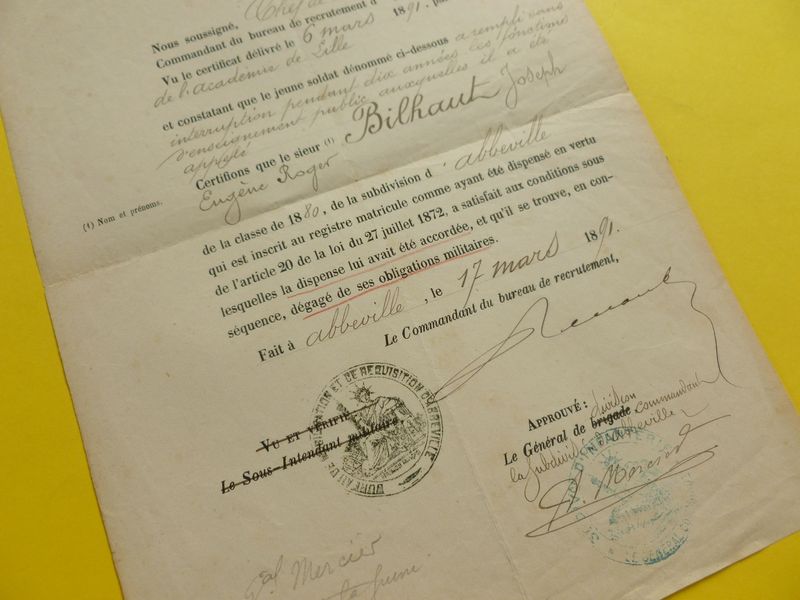 Nous soussigné, Chef de
Commandant du bureau de recrutement d
Vu le certificat délivré le 6 mars 1891, pa
de l'académie de Lille
et constatant que le jeune soldat dénommé ci-dessous a rempli sans
interruption pendant dix années les fonctions
d'enseignement public auxquelles il a été
appelé
Certifions que le sieur (1) Bilhaut Joseph
Eugène Roger
(1) Nom et prénoms.
de la classe de 1880, de la subdivision d'abbeville
qui est inscrit au registre matricule comme ayant été dispensé en vertu
de l'article 20 de la loi du 27 juillet 1872, a satisfait aux conditions sous
lesquelles la dispense lui avait été accordée, et qu'il se trouve, en con-
séquence, dégagé de ses obligations militaires.
Fait à abbeville, le 17 mars 1891.
Le Commandant du bureau de recrutement,
VU ET VÉRIFIÉ
Le Sous-Intendant militaire,
BUREAU DE ET DE REQUISITION D'ABBEVILLE
APPROUVÉ :
division
Le Général de brigade commandant
la subdivision d'abbeville
Mercier
LE GÉNÉRAL
Gal Mercier